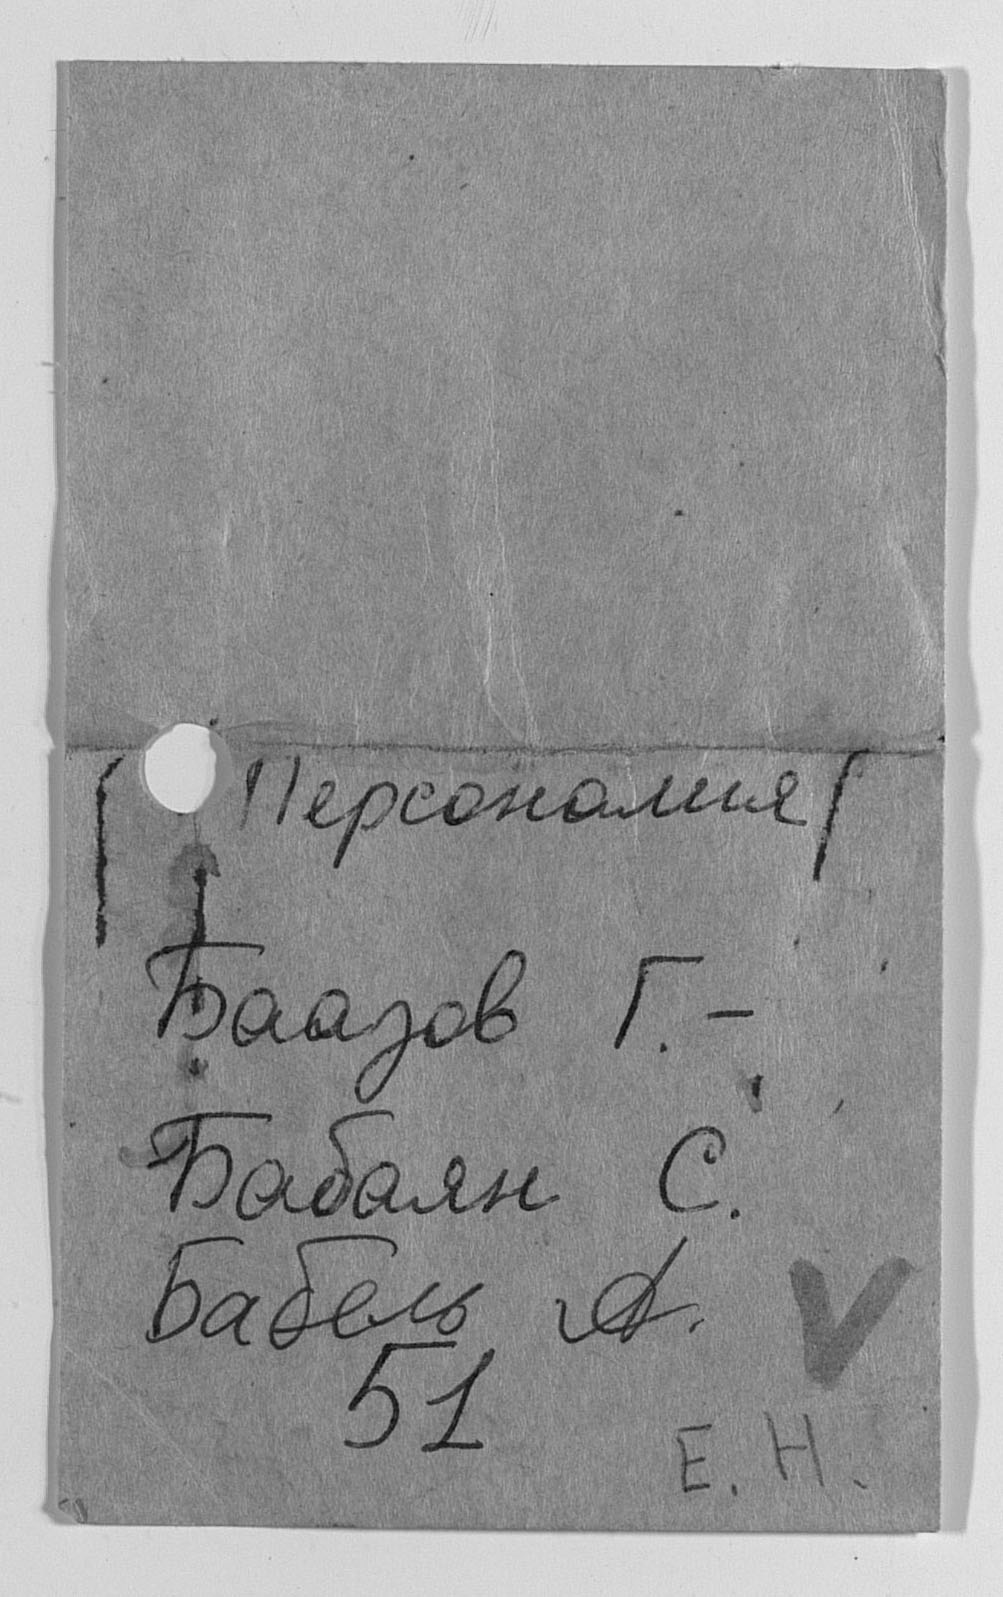 Персоналия
Баазов Г. -
Бабаян С.
Бабель А.
51
Е. Н.